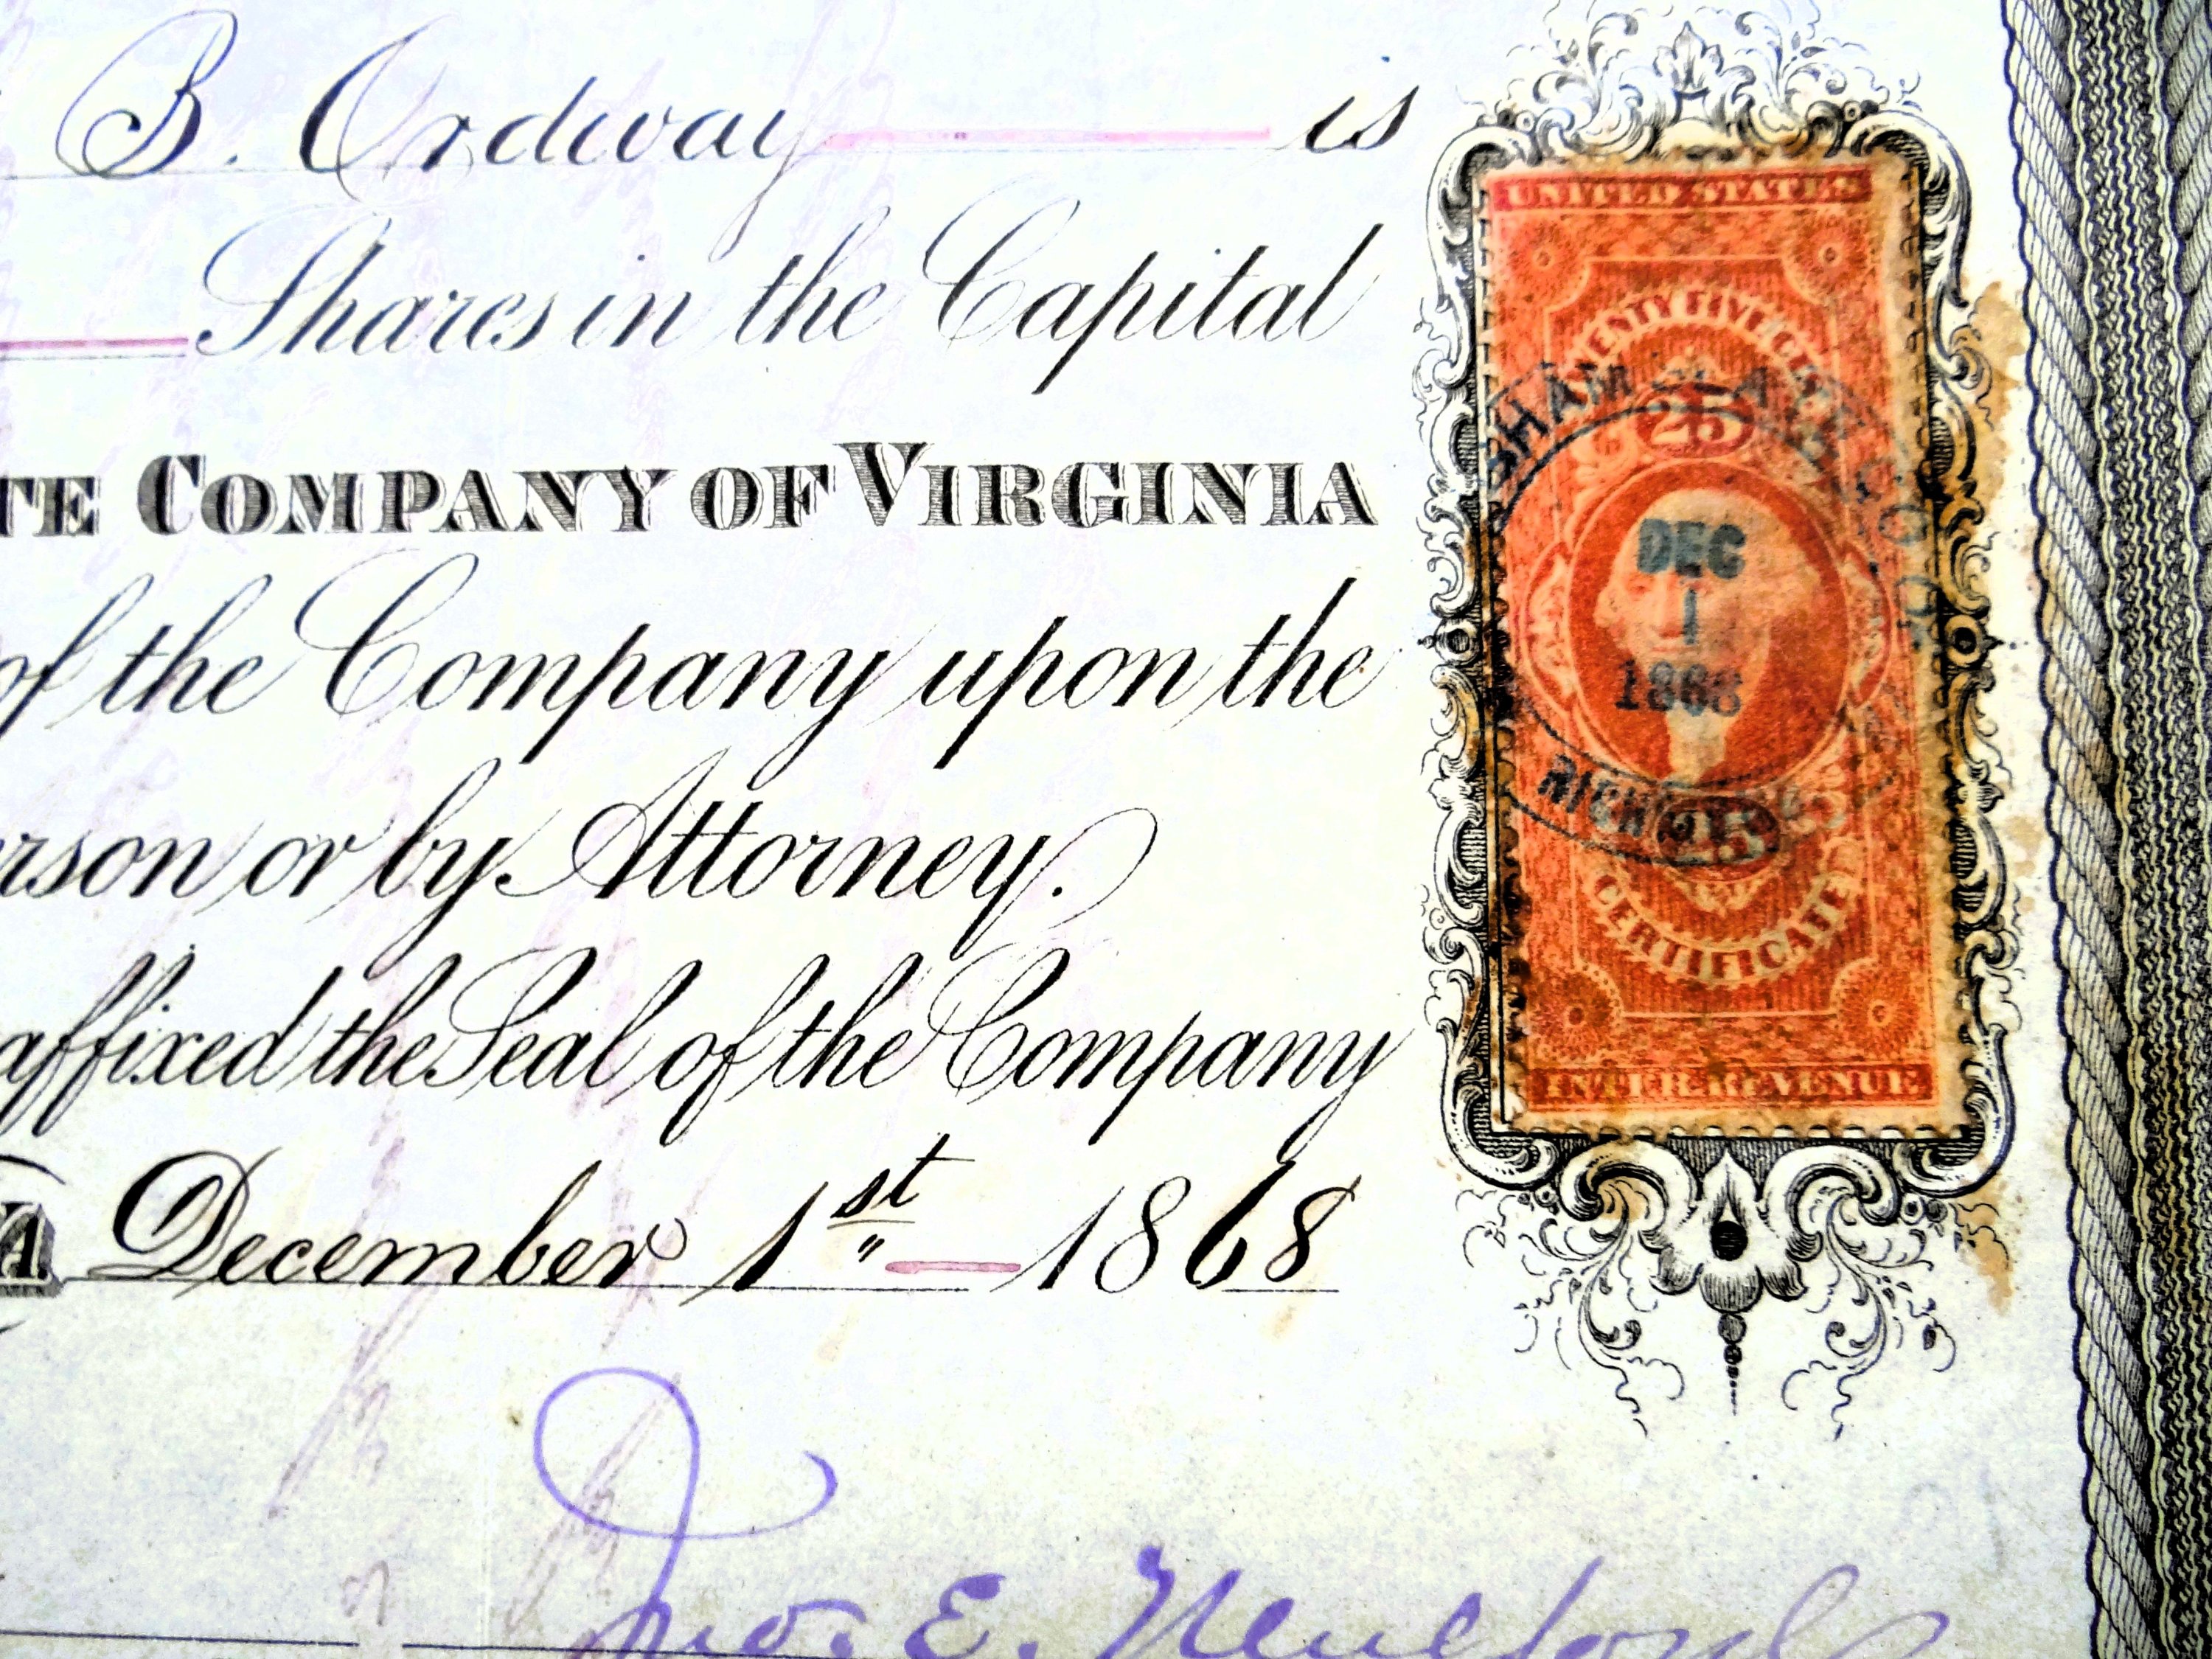 B. Ordway is
Shares in the Capital
TE COMPANY OF VIRGINIA
of the Company upon the
rson or by Attorney.
affixed the Seal of the Company
VA. December 1st 1868
Jno. E.
UNITED STATES
TWENTY FIVE CENTS
25
DEC
1
1868
RICHMOND
25
CERTIFICATE
INTER. REVENUE